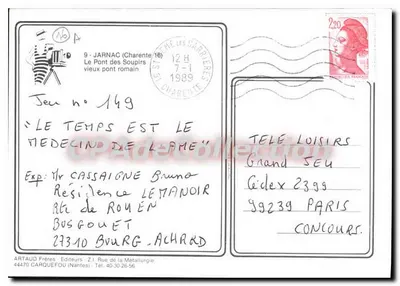 9 - JARNAC (Charente 16)
Le Pont des Soupirs
vieux pont romain
12 H
7-1
1989
CHARENTE
2,20
Jeu n° 149
"LE TEMPS EST LE
MEDECIN DE L'AME"
Exp: Mr CASSAIGNE Bruno
Résidence LEMANOIR
Rte de ROUEN
BOSGOUET
27310 BOURG-ACHARD
TELE LOISIRS
Grand JEU
Cidex 2399
99239 PARIS
CONCOURS.
ARTAUD Frères Editeurs Z.I. Rue de la Métallurgie
44470 CARQUEFOU (Nantes) Tél. 40.30.26.56